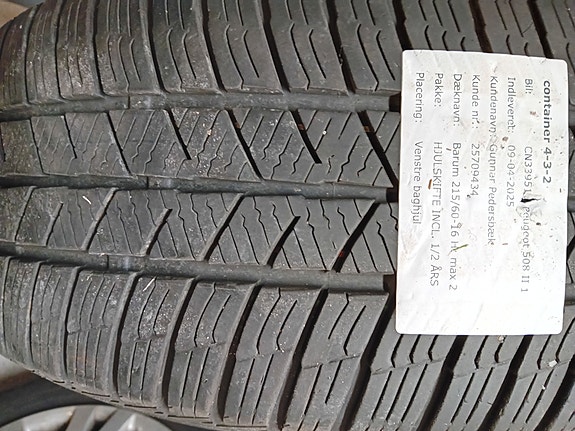 container 4-3-2
Bil: CN33951, Peugeot 508 II 1
Indleveret: 09-04-2025
Kundenavn: Gunnar Pedersbæk
Kunde nr.: 25709434
Dæknavn: Barum 215/60-16 H, max 2
Pakke: HJULSKIFTE INCL. 1/2 ÅRS
Placering: Venstre baghjul